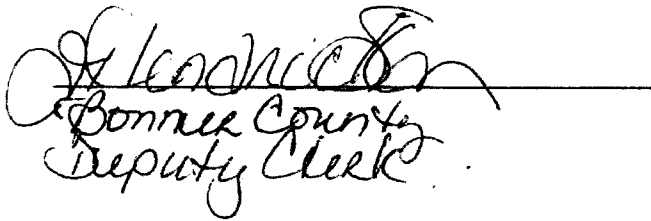 Bonner County
Deputy Clerk